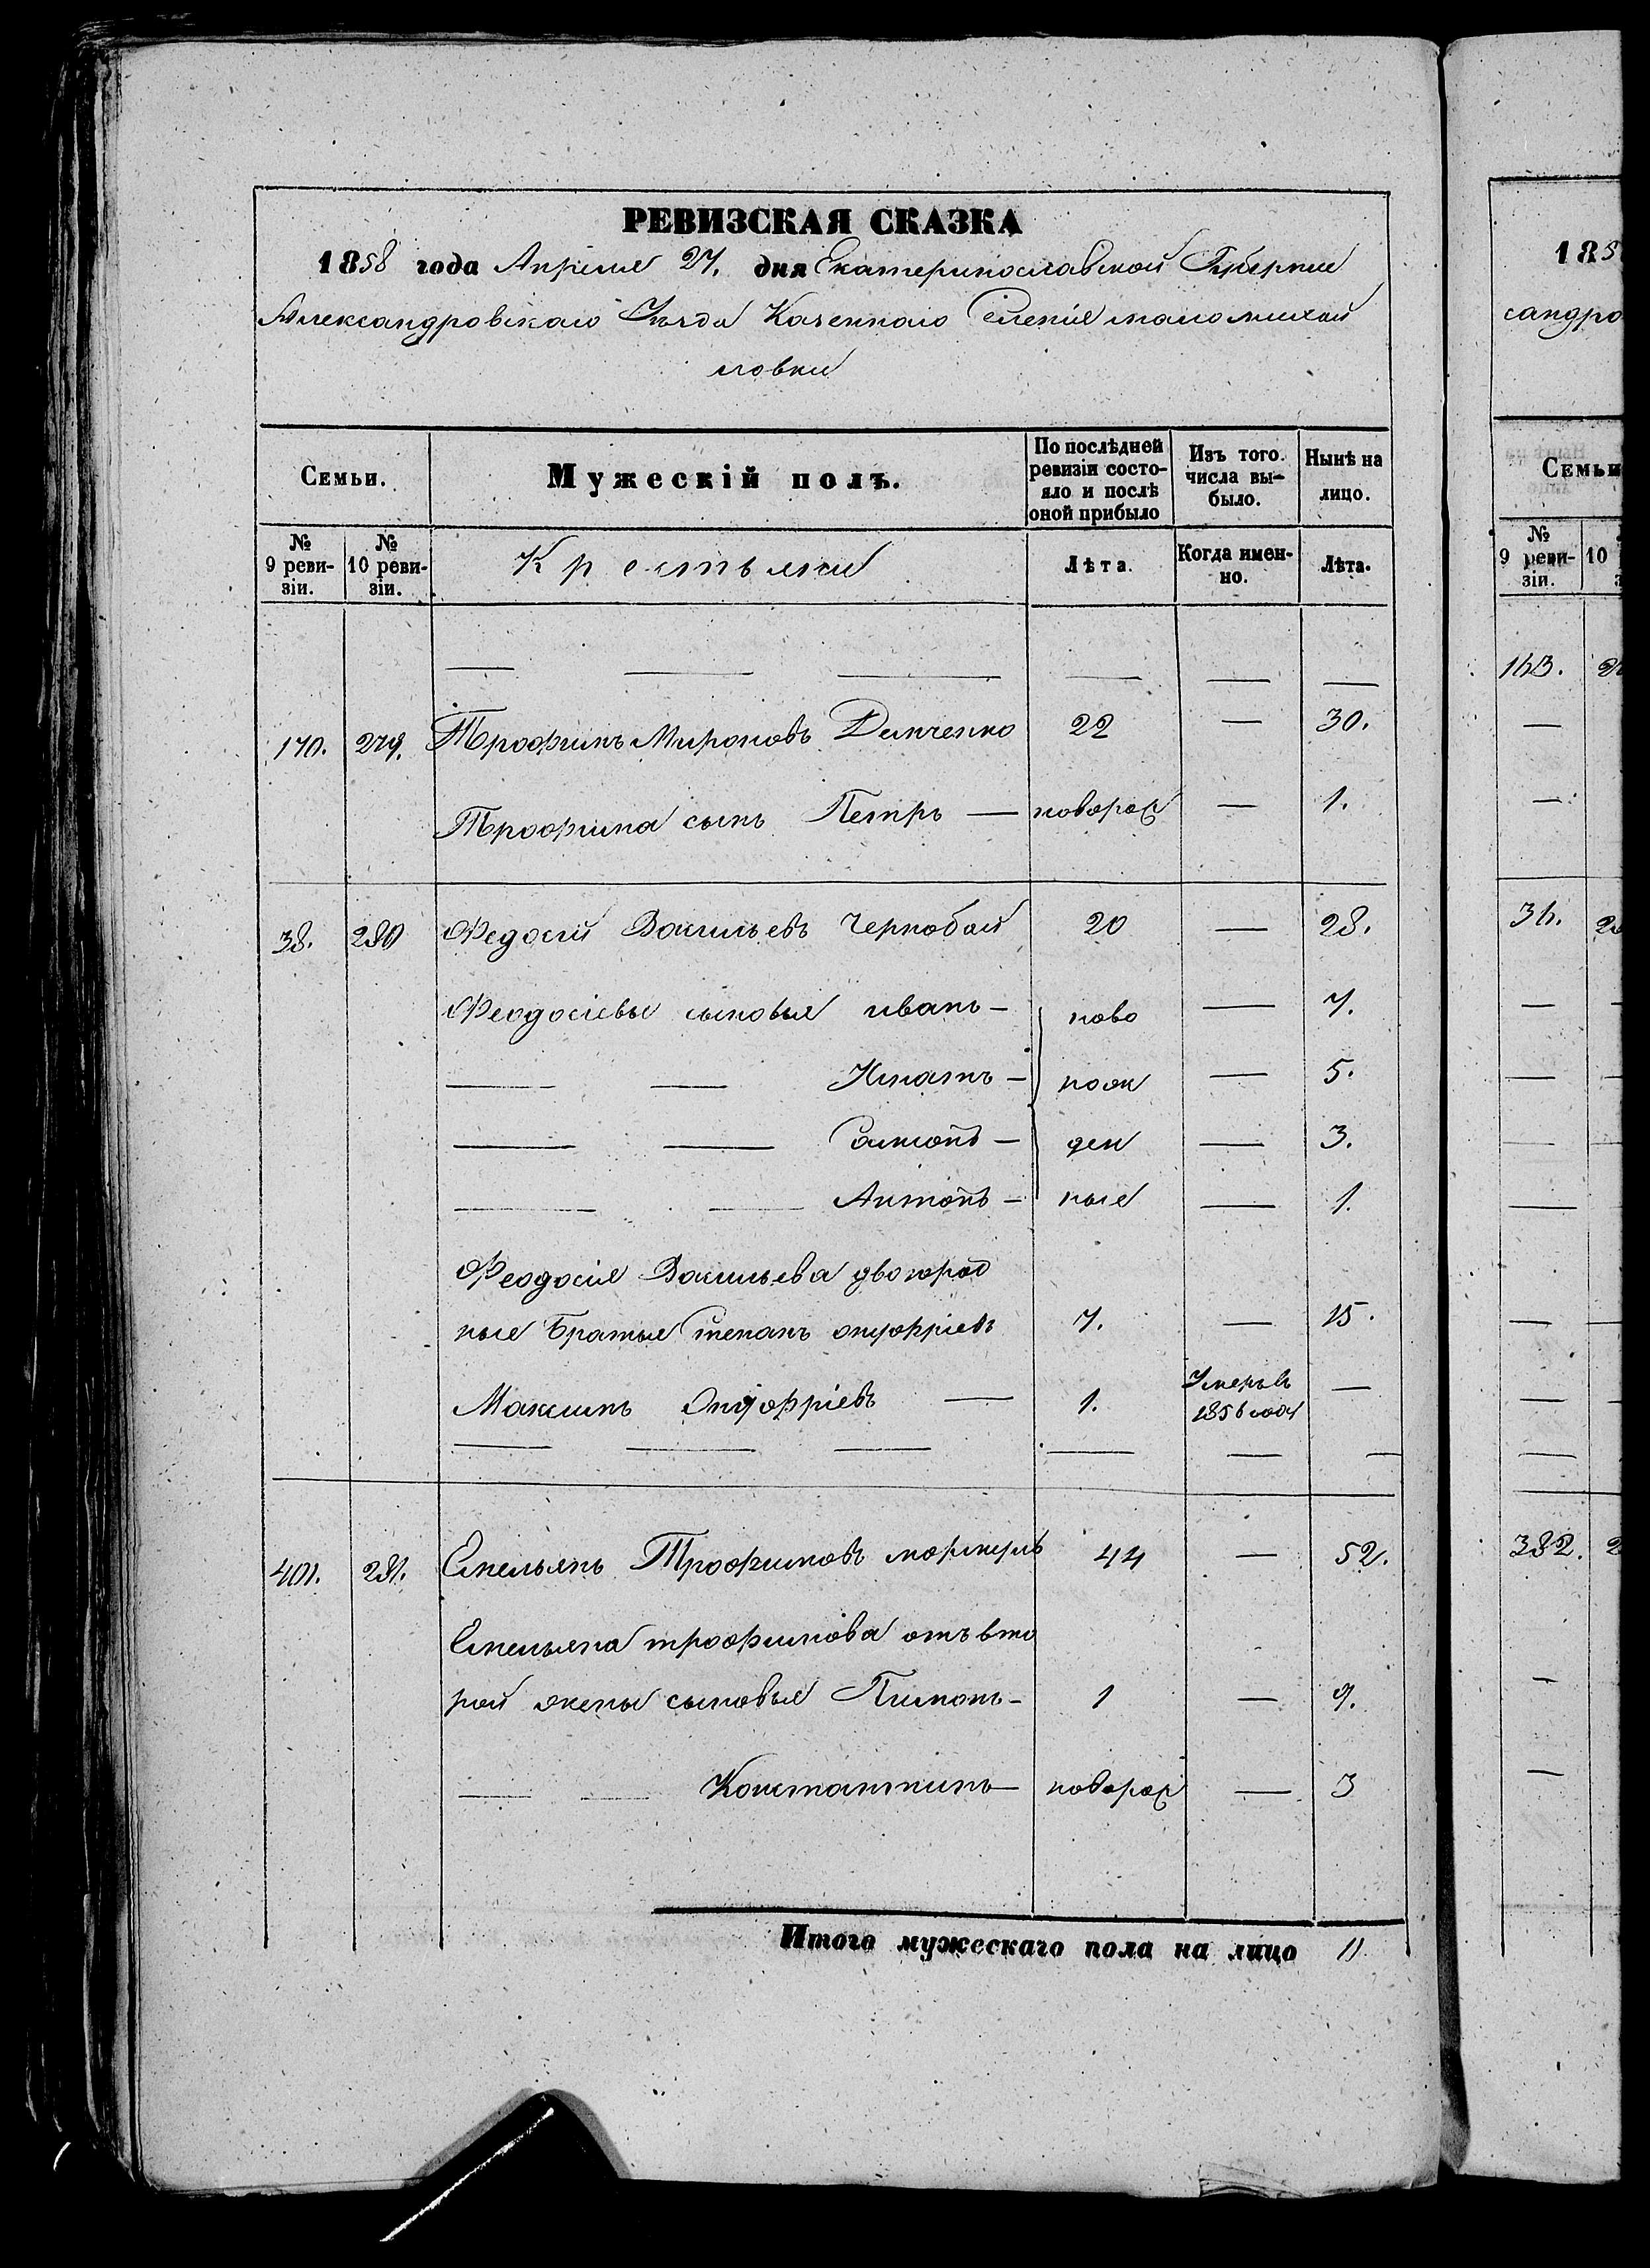 РЕВИЗСКАЯ СКАЗКА
1858 года Апреля 27. дня Екатеринославской Губернии
Александровскаго Уезда Казеннаго Селенія маломихай
ловки
Семьи.
Мужескій полъ.
По послѣдней ревизіи состояло и послѣ оной прибыло
Изъ того числа выбыло.
Нынѣ на лицо.
№ 9 ревизіи.
№ 10 ревизіи.
Крестьяне
Лѣта.
Когда именно.
Лѣта.
170. 279. Трофимъ Мироновъ Демченко 22 — 30.
Трофима сынъ Петръ — новорож — 1.
38. 280 Федосій Васильевъ Чернобай 20 — 28.
Феодосіевы сыновья иванъ — ново — 7.
— — Игнатъ — рож — 5.
— — Самсонъ — ден — 3.
— — Антонъ — ные — 1.
Феодосія Васильева двоюрод
ные братья Степанъ онуфріевъ 7. — 15.
Максимъ Онуфріевъ — 1. Умеръ въ 1856 году —
401. 281. Емельянъ Трофимовъ 44 — 52.
Емельяна трофимова отъ вто
рой жены сыновья Пименъ — 1 — 9.
— — Константинъ — новорож — 3
Итого мужескаго пола на лицо 11
185
сандро
Семьи
№ 9 ревизіи.
10
34.
382. 2